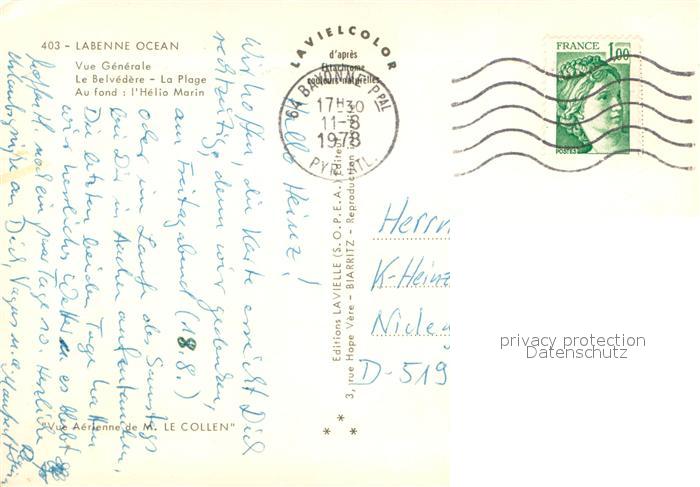 403 - LABENNE OCEAN
Vue Générale
Le Belvédère - La Plage
Au fond : l'Hélio Marin
LAVIELCOLOR
d'après
Ektachrome
couleurs naturelles
64 BAYONNE PPAL
17H30
11-8
1978
PYR. ATL.
FRANCE 1,00
POSTES
Hallo Heinz!
Wir hoffen, die Karte erreicht Dich
rechtzeitig, denn wir gedenken,
am Freitagabend (18.8.)
oder im Laufe des Samstags
bei Dir in Aachen aufzutauchen.
Die letzten beiden Tage hatten
wir herrliches Wetter es bleibt
noch ein paar Tage so. Herzliche
Urlaubsgrüße an Dich,
Editions LAVIELLE (S.O.P.E.A.) Editeur
3, rue Hope Vère - BIARRITZ - Reproduction
Herrn
K-Heinz
D-519
privacy protection
Datenschutz
"Vue Aérienne de M. LE COLLEN"